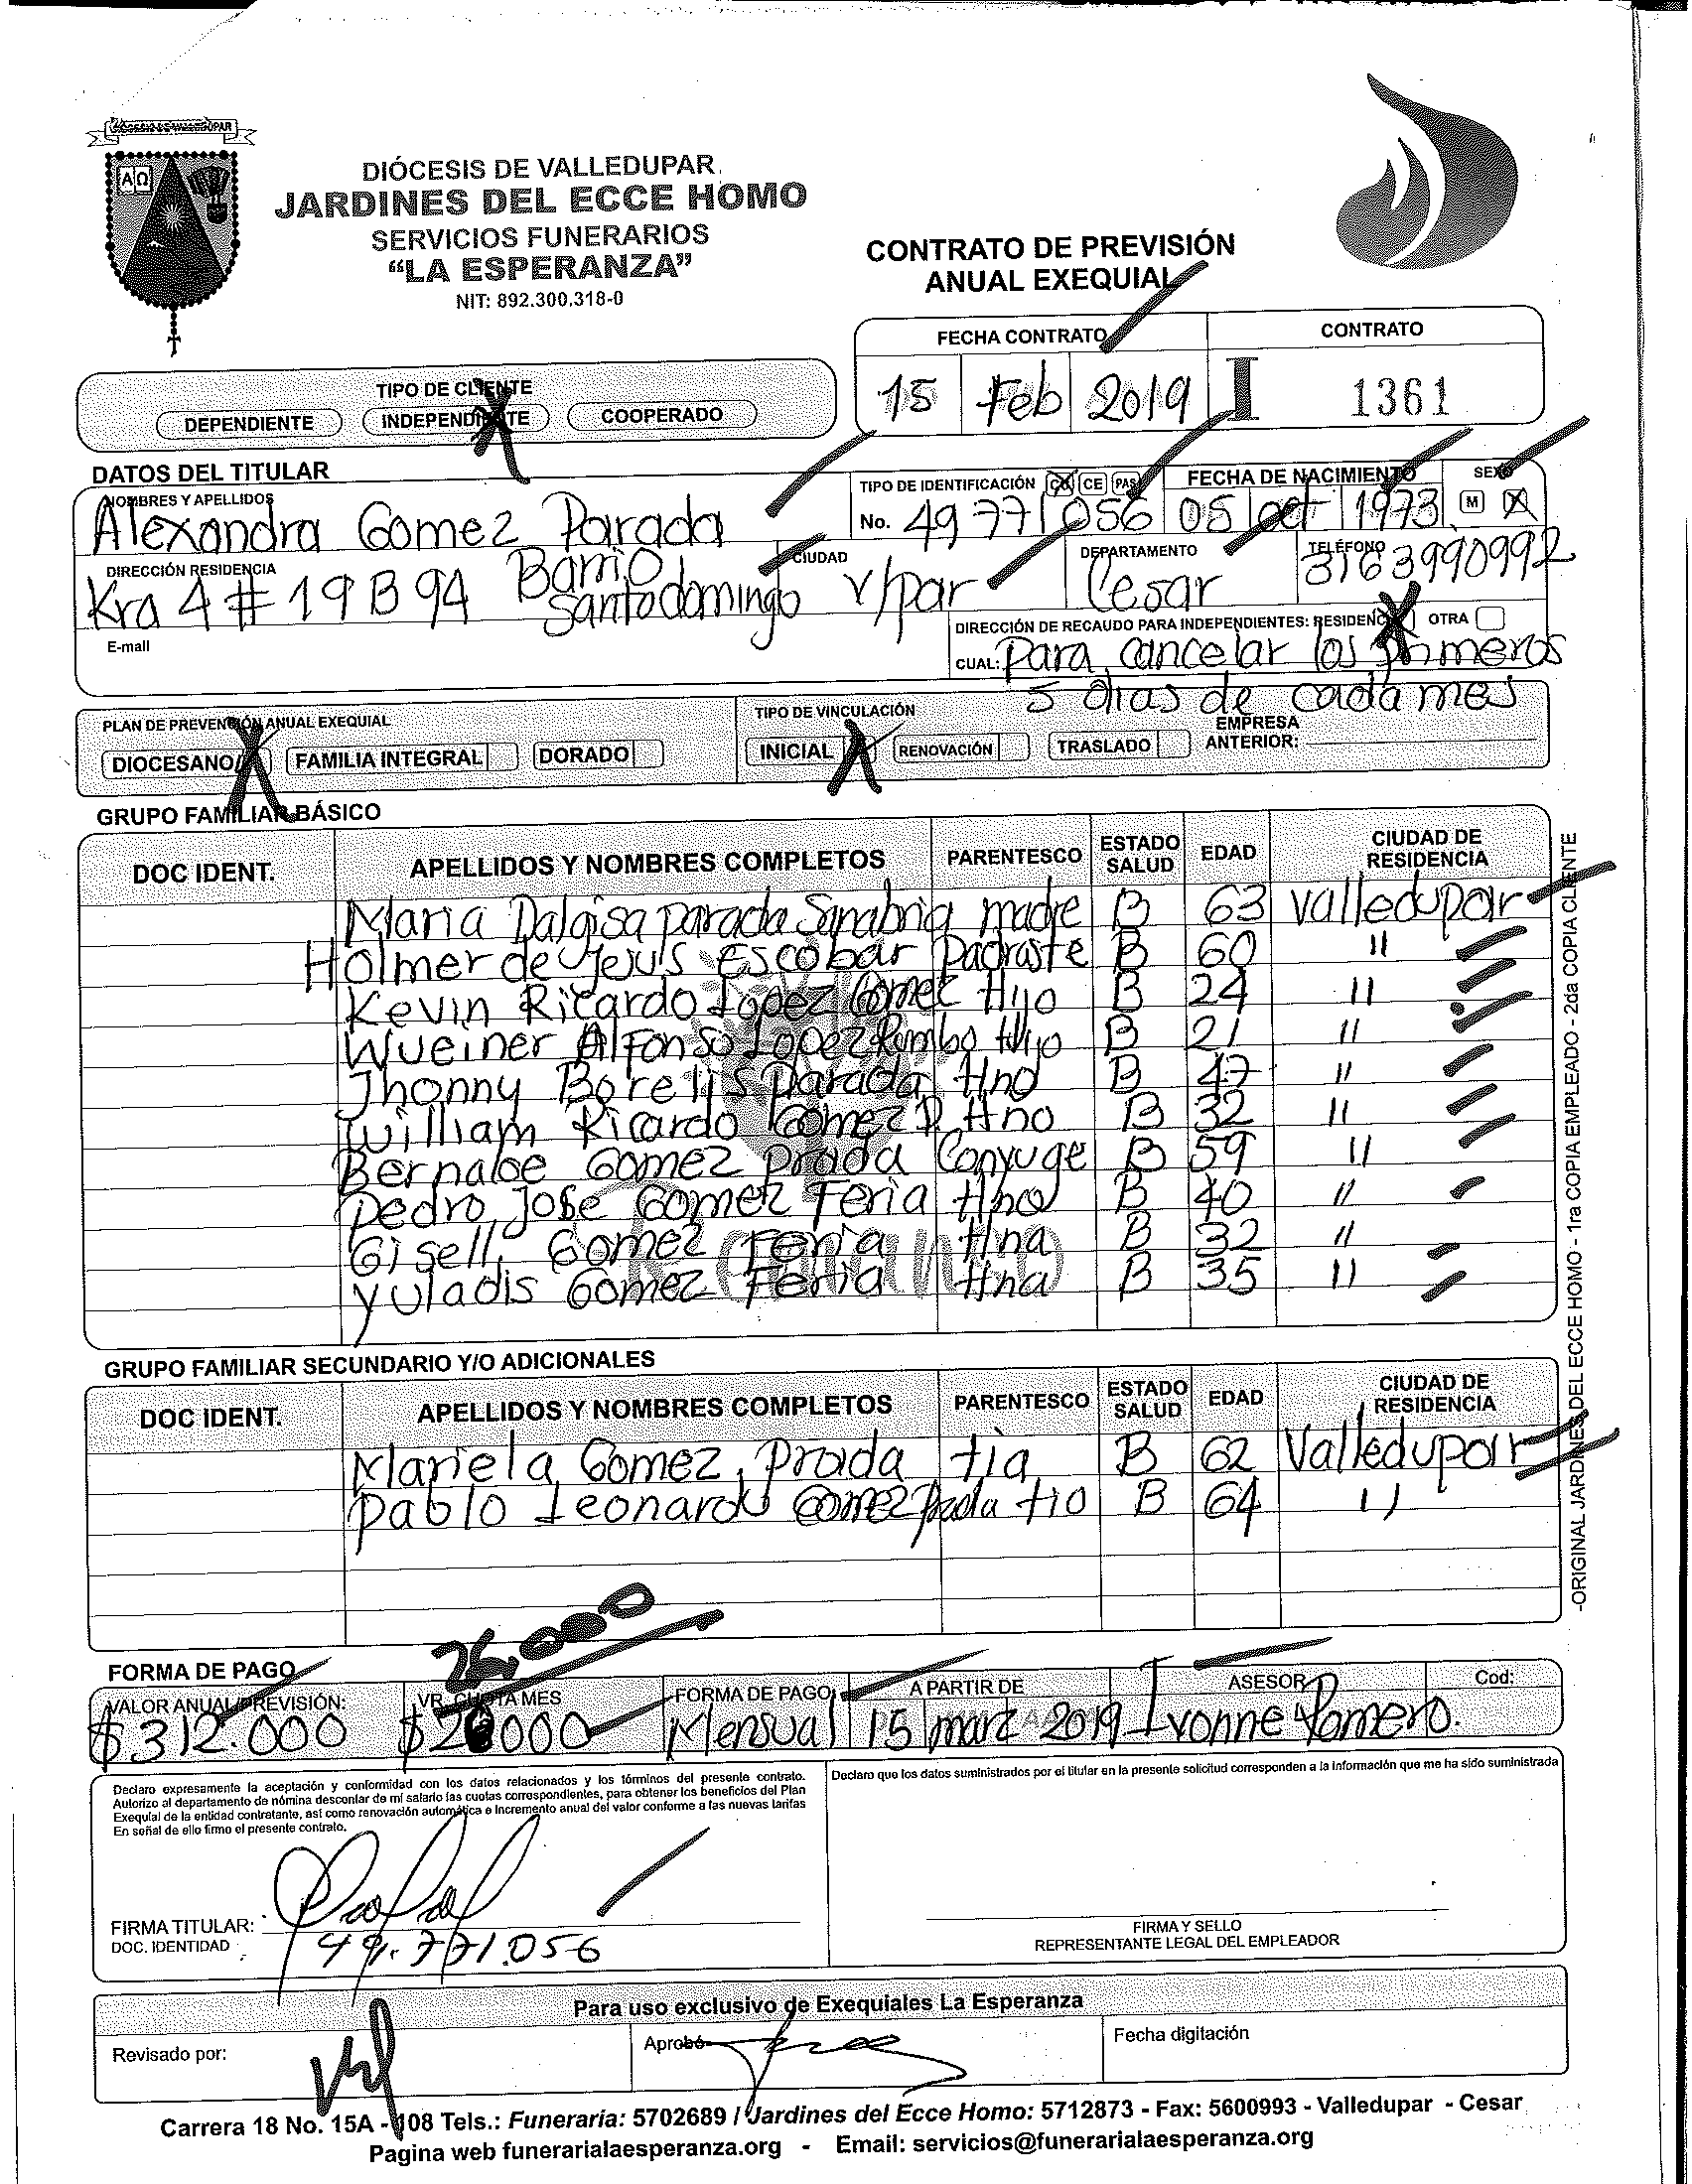 DIÓCESIS DE VALLEDUPAR
JARDINES DEL ECCE HOMO
SERVICIOS FUNERARIOS
“LA ESPERANZA”
NIT: 892.300.318-0
CONTRATO DE PREVISIÓN
ANUAL EXEQUIAL
FECHA CONTRATO CONTRATO
15 Feb 2019 I 1361
TIPO DE CLIENTE
DEPENDIENTE INDEPENDIENTE X COOPERADO
DATOS DEL TITULAR
NOMBRES Y APELLIDOS TIPO DE IDENTIFICACIÓN CC CE PAS FECHA DE NACIMIENTO SEXO
Alexandra Gomez Parada No. 49771056 05 oct 1973 M X
DIRECCIÓN RESIDENCIA CIUDAD DEPARTAMENTO TELÉFONO
Kra 4 # 19 B 94 Barrio Santo domingo V/par Cesar 3163990992
E-mail
DIRECCIÓN DE RECAUDO PARA INDEPENDIENTES: RESIDENCIA X OTRA
CUAL: Para cancelar los primeros
5 dias de cada mes
PLAN DE PREVENCIÓN ANUAL EXEQUIAL TIPO DE VINCULACIÓN
DIOCESANO X FAMILIA INTEGRAL DORADO INICIAL X RENOVACIÓN TRASLADO EMPRESA ANTERIOR:
GRUPO FAMILIAR BÁSICO
DOC IDENT. APELLIDOS Y NOMBRES COMPLETOS PARENTESCO ESTADO SALUD EDAD CIUDAD DE RESIDENCIA
Maria Dalgisa parada Sanabria madre B 63 Valledupar
Holmer de Jesus Escobar Padraste B 60 "
Kevin Ricardo Lopez Gomez Hijo B 24 "
Wueiner Alfonso Lopez Rumbo Hijo B 21 "
Jhonny Borelis Parada Hno B 47 "
William Ricardo Gomez P. Hno B 32 "
Bernabe Gomez Prada Conyuge B 59 "
Pedro Jose Gomez Feria Hno B 40 "
Gisell Gomez Feria Hna B 32 "
Yuladis Gomez Feria Hna B 35 "
GRUPO FAMILIAR SECUNDARIO Y/O ADICIONALES
DOC IDENT. APELLIDOS Y NOMBRES COMPLETOS PARENTESCO ESTADO SALUD EDAD CIUDAD DE RESIDENCIA
Mariela Gomez Prada tia B 62 Valledupar
Pablo Leonardo Gomez Prada tio B 64 "
26.000
FORMA DE PAGO
VALOR ANUAL PREVISIÓN: VR. CUOTA MES FORMA DE PAGO A PARTIR DE ASESOR Cod:
$312.000 $26000 Mensual 15 marz 2019 Ivonne Romero.
Declaro expresamente la aceptación y conformidad con los datos relacionados y los términos del presente contrato.
Autorizo al departamento de nómina descontar de mi salario las cuotas correspondientes, para obtener los beneficios del Plan
Exequial de la entidad contratante, así como renovación automática e incremento anual del valor conforme a las nuevas tarifas
En señal de ello firmo el presente contrato.
Declaro que los datos suministrados por el titular en la presente solicitud corresponden a la información que me ha sido suministrada
FIRMA TITULAR:
DOC. IDENTIDAD 49.771.056
FIRMA Y SELLO
REPRESENTANTE LEGAL DEL EMPLEADOR
Para uso exclusivo de Exequiales La Esperanza
Revisado por: Aprobó Fecha digitación
Carrera 18 No. 15A - 108 Tels.: Funeraria: 5702689 / Jardines del Ecce Homo: 5712873 - Fax: 5600993 - Valledupar - Cesar
Pagina web funerarialaesperanza.org - Email: servicios@funerarialaesperanza.org
-ORIGINAL JARDINES DEL ECCE HOMO - 1ra COPIA EMPLEADO - 2da COPIA CLIENTE